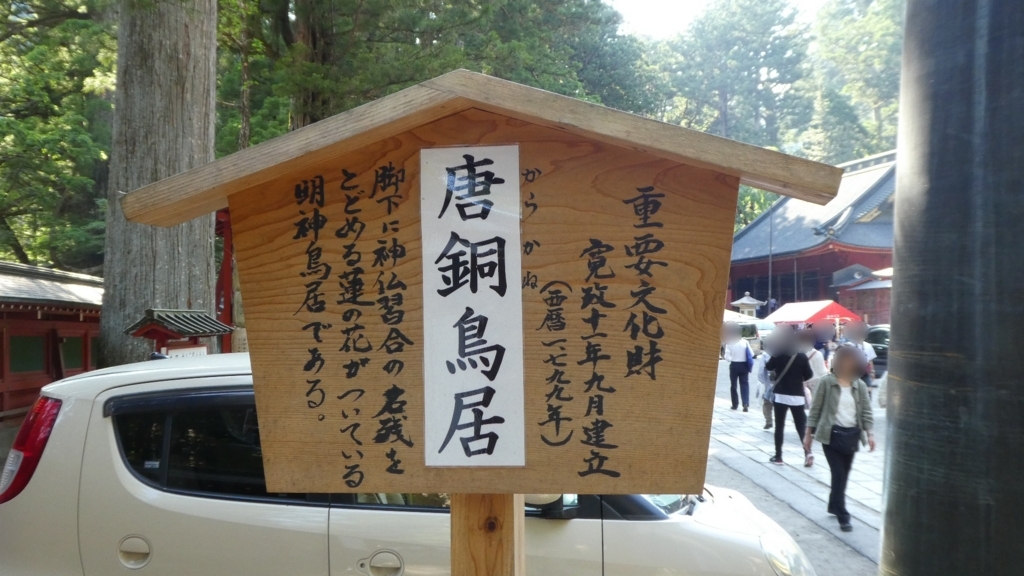 重要文化財
寛政十一年九月建立
(西暦一七九九年)
からかね
唐銅鳥居
脚下に神仏習合の名残を
とどめる蓮の花がついている
明神鳥居である。